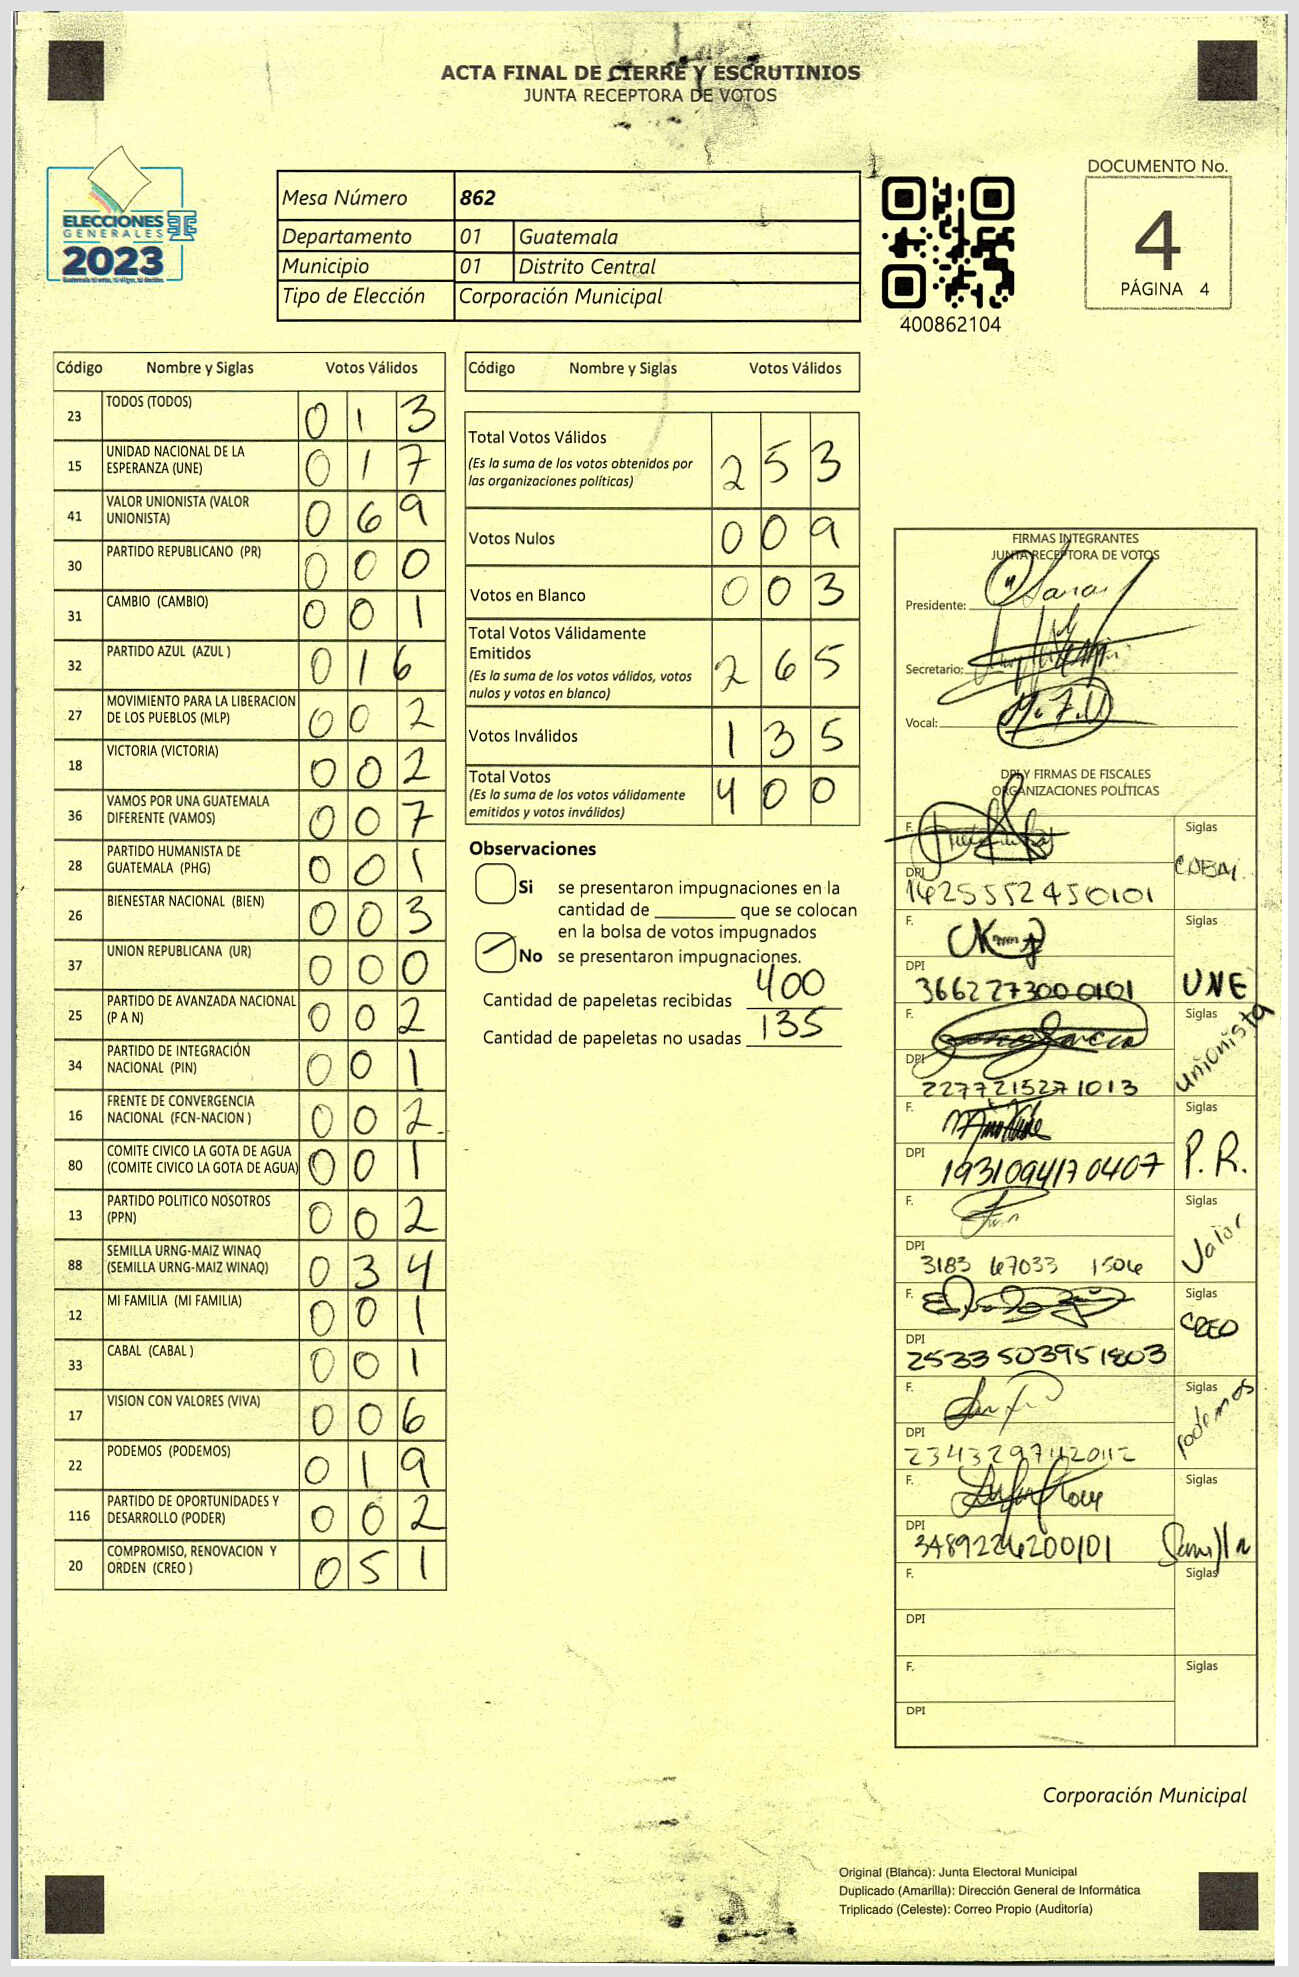 ACTA FINAL DE CIERRE Y ESCRUTINIOS
JUNTA RECEPTORA DE VOTOS
ELECCIONES
GENERALES
2023
Mesa Número 862
Departamento 01 Guatemala
Municipio 01 Distrito Central
Tipo de Elección Corporación Municipal
400862104
DOCUMENTO No.
4
PÁGINA 4
Código Nombre y Siglas Votos Válidos
23 TODOS (TODOS) 0 1 3
15 UNIDAD NACIONAL DE LA
ESPERANZA (UNE) 0 1 7
41 VALOR UNIONISTA (VALOR
UNIONISTA) 0 6 9
30 PARTIDO REPUBLICANO (PR) 0 0 0
31 CAMBIO (CAMBIO) 0 0 1
32 PARTIDO AZUL (AZUL ) 0 1 6
27 MOVIMIENTO PARA LA LIBERACION
DE LOS PUEBLOS (MLP) 0 0 2
18 VICTORIA (VICTORIA) 0 0 2
36 VAMOS POR UNA GUATEMALA
DIFERENTE (VAMOS) 0 0 7
28 PARTIDO HUMANISTA DE
GUATEMALA (PHG) 0 0 1
26 BIENESTAR NACIONAL (BIEN) 0 0 3
37 UNION REPUBLICANA (UR) 0 0 0
25 PARTIDO DE AVANZADA NACIONAL
(P A N) 0 0 2
34 PARTIDO DE INTEGRACIÓN
NACIONAL (PIN) 0 0 1
16 FRENTE DE CONVERGENCIA
NACIONAL (FCN-NACION ) 0 0 2
80 COMITE CIVICO LA GOTA DE AGUA
(COMITE CIVICO LA GOTA DE AGUA) 0 0 1
13 PARTIDO POLITICO NOSOTROS
(PPN) 0 0 2
88 SEMILLA URNG-MAIZ WINAQ
(SEMILLA URNG-MAIZ WINAQ) 0 3 4
12 MI FAMILIA (MI FAMILIA) 0 0 1
33 CABAL (CABAL ) 0 0 1
17 VISION CON VALORES (VIVA) 0 0 6
22 PODEMOS (PODEMOS) 0 1 9
116 PARTIDO DE OPORTUNIDADES Y
DESARROLLO (PODER) 0 0 2
20 COMPROMISO, RENOVACION Y
ORDEN (CREO ) 0 5 1
Código Nombre y Siglas Votos Válidos
Total Votos Válidos 2 5 3
(Es la suma de los votos obtenidos por
las organizaciones políticas)
Votos Nulos 0 0 9
Votos en Blanco 0 0 3
Total Votos Válidamente
Emitidos 2 6 5
(Es la suma de los votos válidos, votos
nulos y votos en blanco)
Votos Inválidos 1 3 5
Total Votos 4 0 0
(Es la suma de los votos válidamente
emitidos y votos inválidos)
Observaciones
Si se presentaron impugnaciones en la
cantidad de ________ que se colocan
en la bolsa de votos impugnados
No se presentaron impugnaciones.
Cantidad de papeletas recibidas 400
Cantidad de papeletas no usadas 135
FIRMAS INTEGRANTES
JUNTA RECEPTORA DE VOTOS
Presidente:
Secretario:
Vocal:
DPI Y FIRMAS DE FISCALES
ORGANIZACIONES POLÍTICAS
F. Siglas
DPI 1625552450101 CABAL
F. Siglas
DPI 3662273000101 UNE
F. Siglas
DPI 2277215271013 unionista
F. Siglas
DPI 1931094170407 P.R.
F. Siglas
DPI 3183 67033 1506 Valor
F. Siglas
DPI 2533503951803 CREO
F. Siglas
DPI Podemos
F. Siglas
DPI 3489226200101 Semilla
F. Siglas
DPI
F. Siglas
DPI
Corporación Municipal
Original (Blanca): Junta Electoral Municipal
Duplicado (Amarilla): Dirección General de Informática
Triplicado (Celeste): Correo Propio (Auditoría)